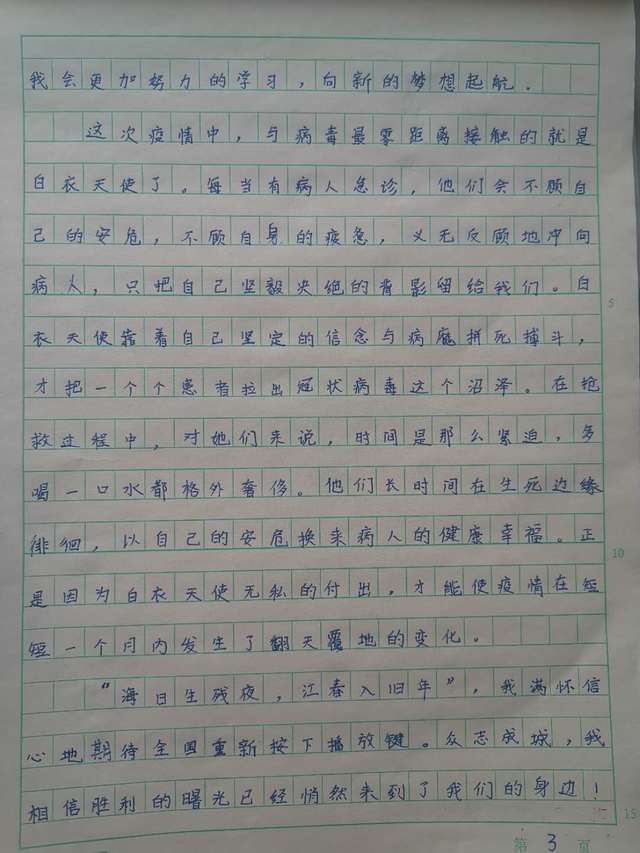 我会更加努力的学习，向新的梦想起航。
这次疫情中，与病毒最零距离接触的就是
白衣天使了。每当有病人急诊，他们会不顾自
己的安危，不顾自身的疲惫，义无反顾地冲向
病人，只把自己坚毅决绝的背影留给我们。白
衣天使靠着自己坚定的信念与病魔拼死搏斗，
才把一个个患者拉出冠状病毒这个沼泽。在抢
救过程中，对她们来说，时间是那么紧迫，多
喝一口水都格外奢侈。他们长时间在生死边缘
徘徊，以自己的安危换来病人的健康幸福。正
是因为白衣天使无私的付出，才能使疫情在短
短一个月内发生了翻天覆地的变化。
“海日生残夜，江春入旧年”，我满怀信
心地期待全国重新按下播放键。众志成城，我
相信胜利的曙光已经悄然来到了我们的身边！
5
10
15
第 3 页